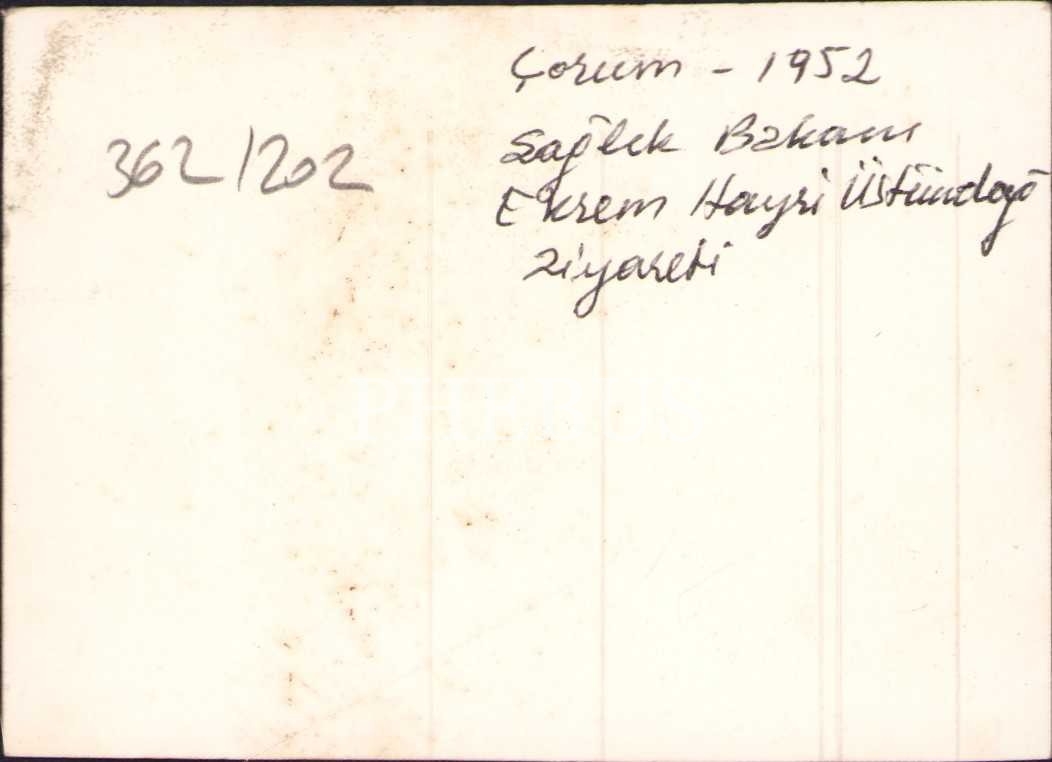 Çorum - 1952
Sağlık Bakanı
Ekrem Hayri Üstündağ
Ziyareti
362/202